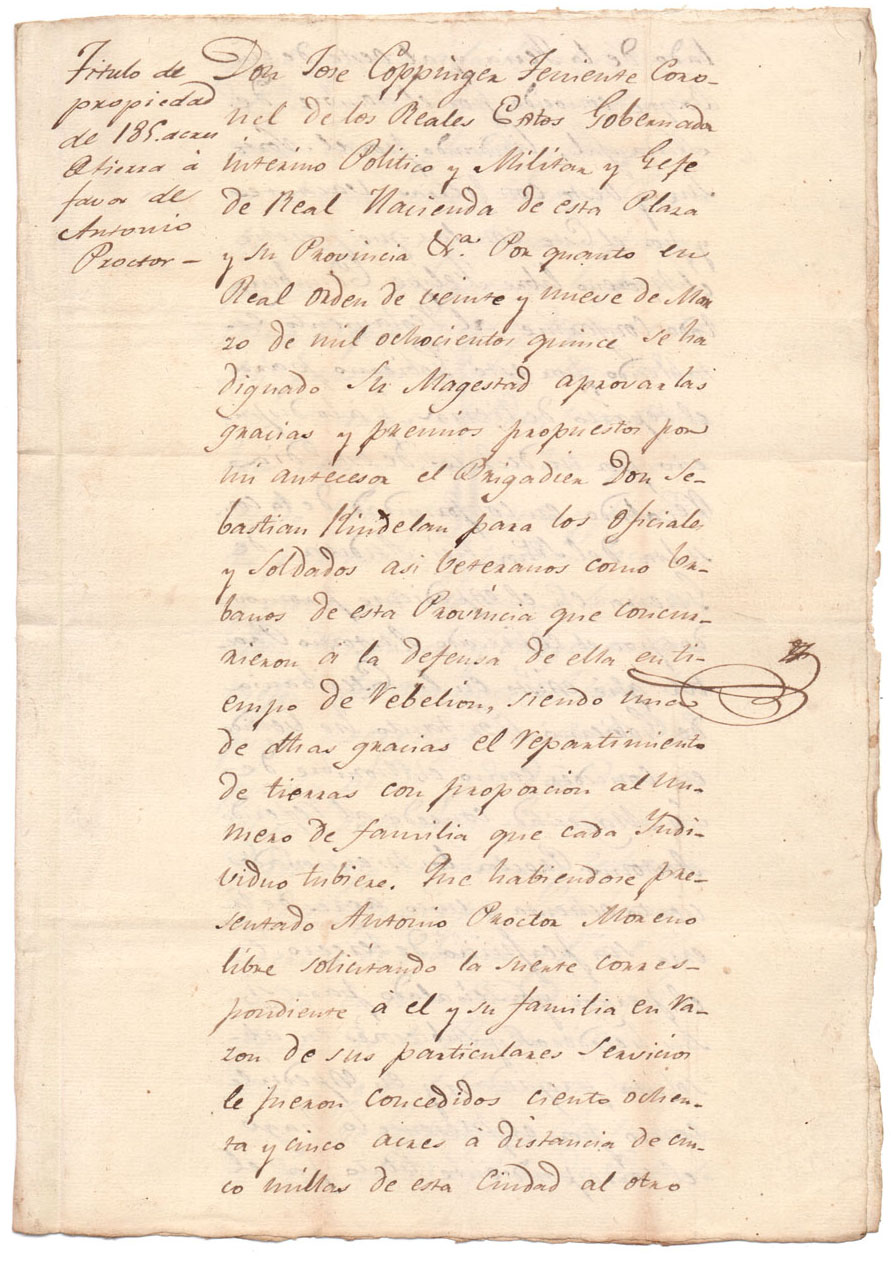 Titulo de
propiedad
de 185. acres
de tierra à
favor de
Antonio
Proctor —
Don Jose Coppinger Teniente Coro-
nel de los Reales Extos Gobernador
interino Politico y Militar y Gefe
de Real Hacienda de esta Plaza
y su Provincia &.ª Por quanto en
Real orden de veinte y nueve de Mar
zo de mil ochocientos quince se ha
dignado Su Magestad aprovar las
gracias y premios propuestos por
mi antecesor el Brigadier Don Se-
bastian Kindelan para los oficiales
y Soldados asi veteranos como Ur-
banos de esta Provincia que concur-
rieron á la defensa de ella en ti-
empo de Rebelion, siendo una
de dthas gracias el repartimiento
de tierras con proporcion al nu-
mero de familia que cada Yndi-
viduo tubiere. Que habiendose pre-
sentado Antonio Proctor Moreno
libre solicitando la suerte corres-
pondiente à el y su familia en ra-
zon de sus particulares Servicios
le fueron concedidos ciento ochen-
ta y cinco acres à distancia de cin-
co millas de esta Ciudad al otro